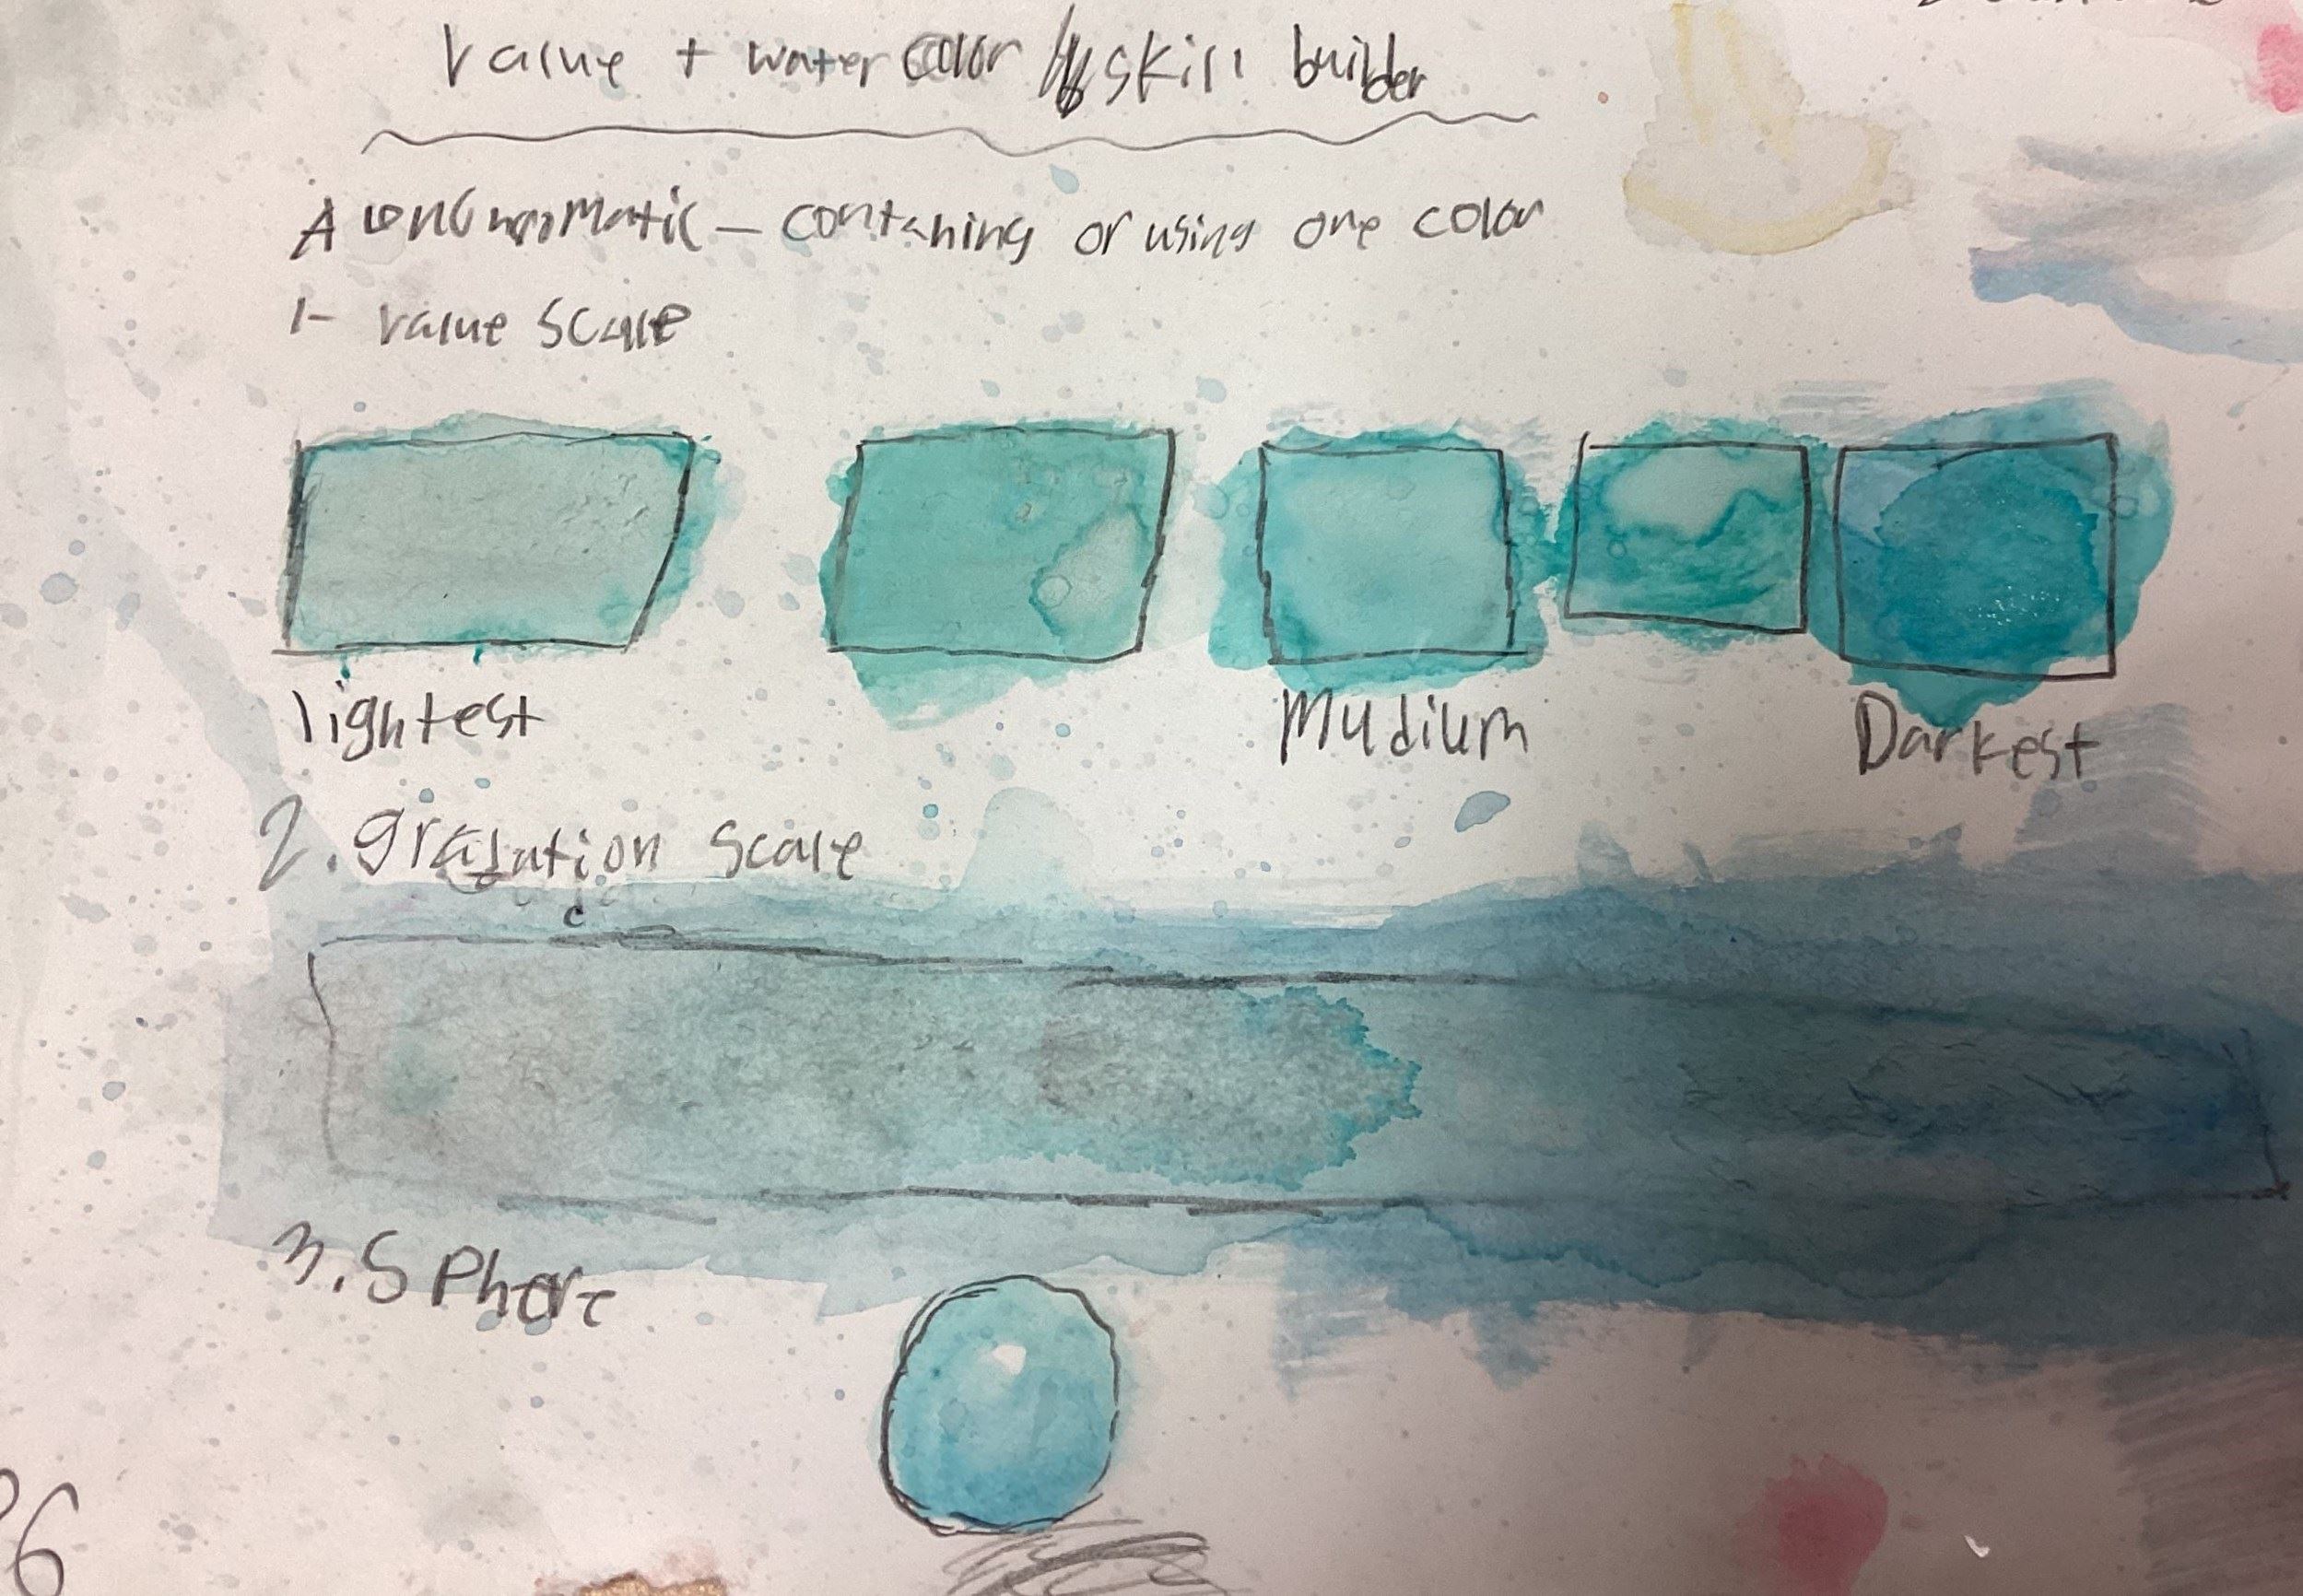 Value + water color skill builder
A - containing or using one color
1- Value Scale
lightest
Mudium
Darkest
2. gradation Scale
3. Sphere